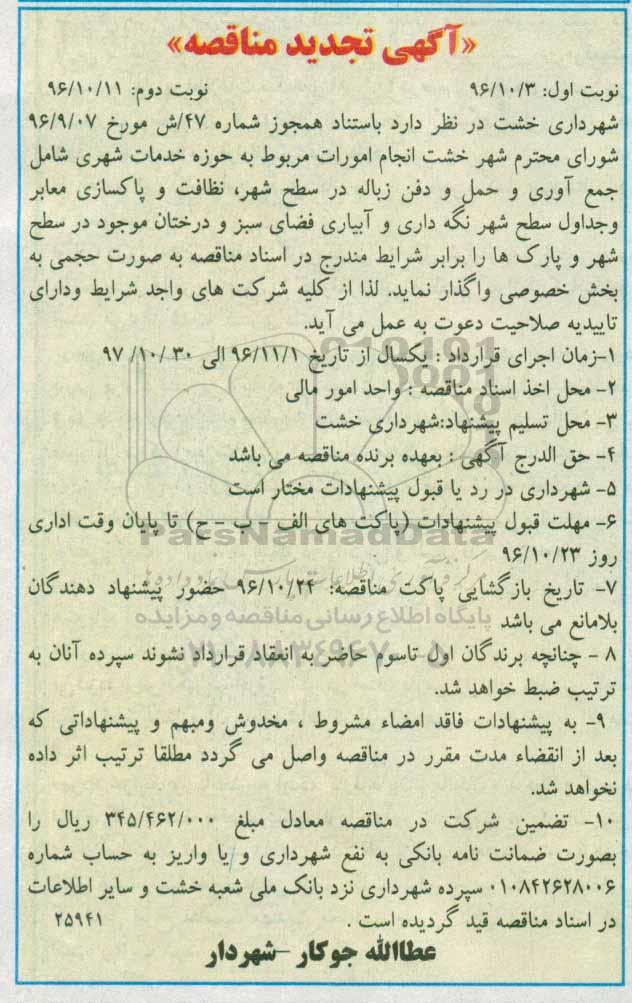 «آگهی تجدید مناقصه»
نوبت اول: ۹۶/۱۰/۳ نوبت دوم: ۹۶/۱۰/۱۱
شهرداری خشت در نظر دارد باستناد همجوز شماره ۴۷/ش مورخ ۹۶/۹/۰۷
شورای محترم شهر خشت انجام امورات مربوط به حوزه خدمات شهری شامل
جمع آوری و حمل و دفن زباله در سطح شهر، نظافت و پاکسازی معابر
وجداول سطح شهر نگه داری و آبیاری فضای سبز و درختان موجود در سطح
شهر و پارک ها را برابر شرایط مندرج در اسناد مناقصه به صورت حجمی به
بخش خصوصی واگذار نماید. لذا از کلیه شرکت های واجد شرایط ودارای
تاییدیه صلاحیت دعوت به عمل می آید.
۱-زمان اجرای قرارداد : یکسال از تاریخ ۹۶/۱۱/۱ الی ۳۰ /۱۰/ ۹۷
۲- محل اخذ اسناد مناقصه : واحد امور مالی
۳- محل تسلیم پیشنهاد:شهرداری خشت
۴- حق الدرج آگهی : بعهده برنده مناقصه می باشد
۵- شهرداری در رد یا قبول پیشنهادات مختار است
۶- مهلت قبول پیشنهادات (پاکت های الف - ب - ح) تا پایان وقت اداری
روز ۹۶/۱۰/۲۳
ParsNamadData
۷- تاریخ بازگشایی پاکت مناقصه: ۹۶/۱۰/۲۴ حضور پیشنهاد دهندگان
بلامانع می باشد
پایگاه اطلاع رسانی مناقصه و مزایده
۸ - چنانچه برندگان اول تاسوم حاضر به انعقاد قرارداد نشوند سپرده آنان به
ترتیب ضبط خواهد شد.
۹- به پیشنهادات فاقد امضاء مشروط ، مخدوش ومبهم و پیشنهاداتی که
بعد از انقضاء مدت مقرر در مناقصه واصل می گردد مطلقا ترتیب اثر داده
نخواهد شد.
۱۰- تضمین شرکت در مناقصه معادل مبلغ ۳۴۵/۴۶۲/۰۰۰ ریال را
بصورت ضمانت نامه بانکی به نفع شهرداری و یا واریز به حساب شماره
۰۱۰۸۴۲۶۲۸۰۰۶ سپرده شهرداری نزد بانک ملی شعبه خشت و سایر اطلاعات
در اسناد مناقصه قید گردیده است . ۲۵۹۴۱
عطاالله جوکار -شهردار